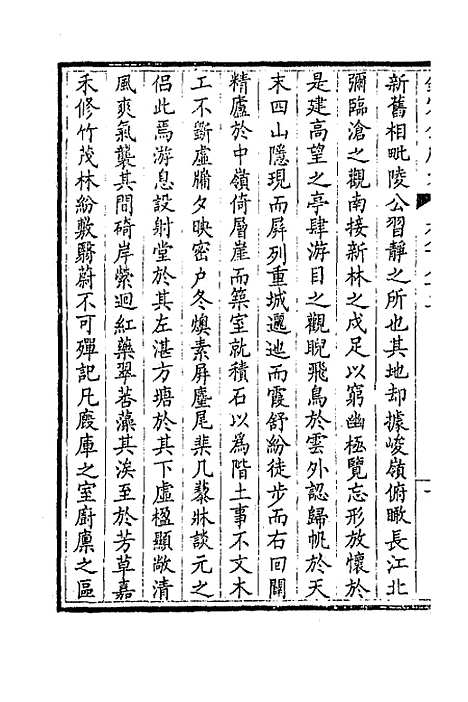 新舊相毗陵公習靜之所也其地却據峻嶺俯瞰長江北
彌臨滄之觀南接新林之戍足以窮幽極覽忘形放懷於
是建高望之亭肆游目之觀睨飛鳥於雲外認歸帆於天
末四山隱現而屏列重城邐迤而霞舒紛徒步而右回闢
精廬於中嶺倚層崖而築室就積石以為階土事不文木
工不斲虛牖夕映密户冬燠素屏麈尾棐几藜牀談元之
侣此焉游息設射堂於其左湛方塘於其下虛楹顯敞清
風爽氣襲其間碕岸縈迴紅藥翠苔藻其涘至於芳草嘉
禾修竹茂林紛敷翳蔚不可殫記凡廄庫之室廚廪之區